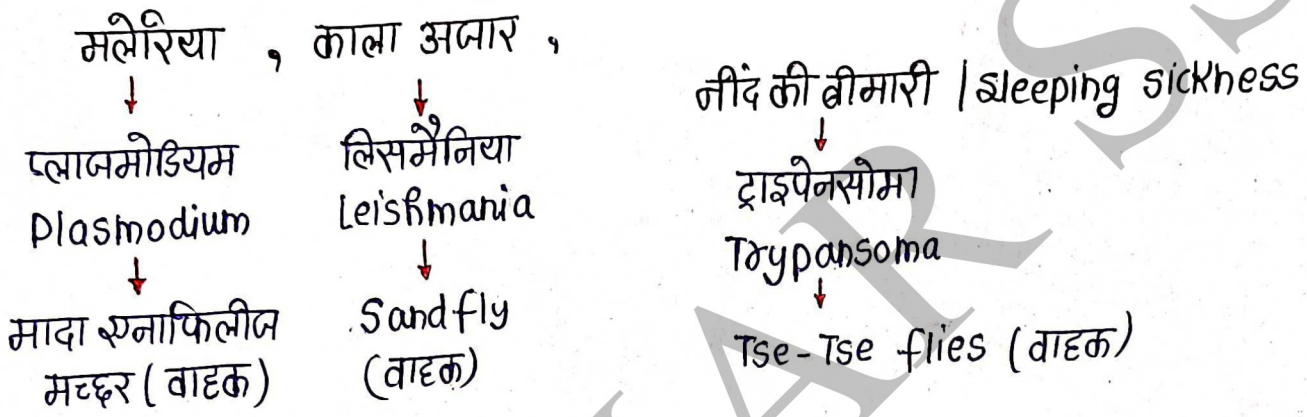 मलेरिया , काला अजार ,
प्लाजमोडियम
Plasmodium
मादा एनाफिलीज
मच्छर ( वाहक )
लिसमैनिया
Leishmania
Sandfly
(वाहक)
नींद की बीमारी | sleeping sickness
ट्राइपेनसोमा
Trypansoma
Tse-Tse flies (वाहक)